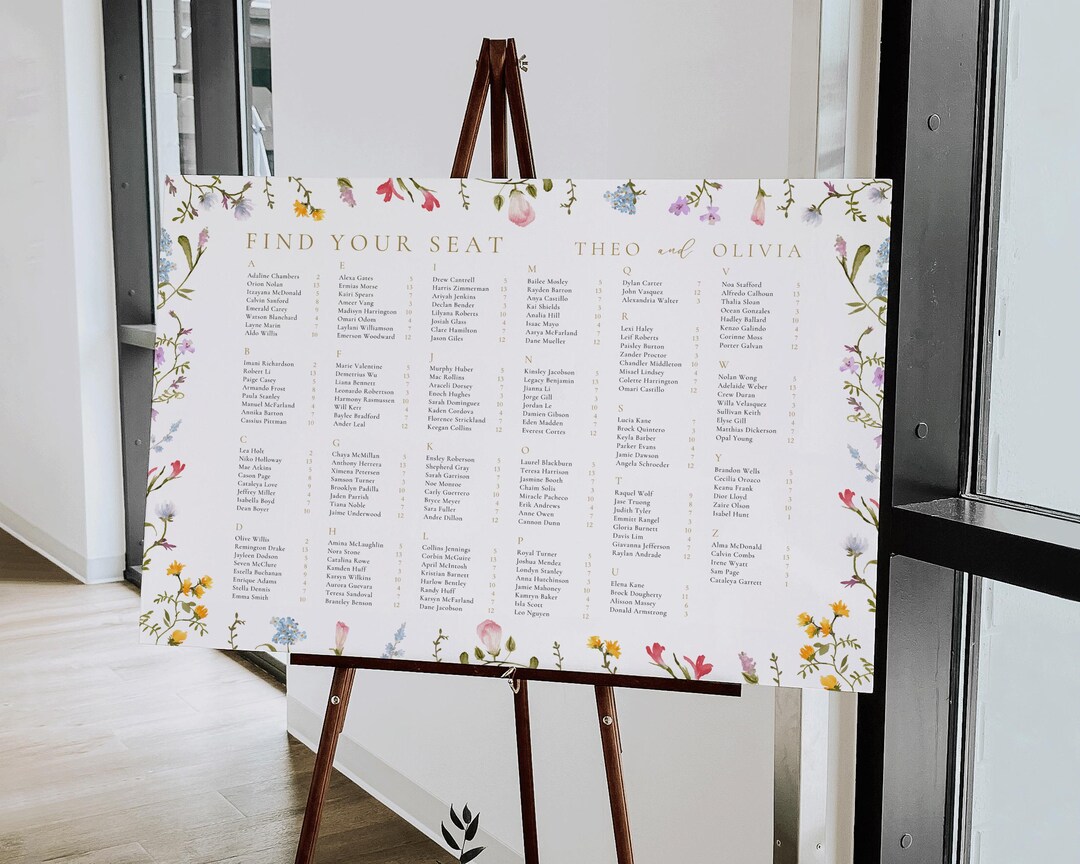 FIND YOUR SEAT
THEO and OLIVIA
A
Adaline Chambers 2
Orion Nolan 13
Itzayana McDonald 7
Calvin Sanford 8
Emerald Carey 9
Watson Blanchard 4
Layne Marin 7
Aldo Willis 10
B
Imani Richardson 2
Robert Li 13
Paige Casey 5
Armando Frost 9
Paula Stanley 9
Manuel McFarland 4
Annika Barton 7
Cassius Pittman 10
C
Lea Holt 2
Niko Holloway 13
Mae Atkins 5
Cason Page 8
Cataleya Lowe 9
Jeffrey Miller 4
Isabella Boyd 7
Dean Boyer 10
D
Olive Willis 2
Remington Drake 13
Jayleen Dodson 5
Seven McClure 8
Estella Buchanan 9
Enrique Adams 4
Stella Dennis 7
Emma Smith 10
E
Alexa Gates 5
Ermias Morse 13
Kairi Spears 7
Ameer Vang 5
Madisyn Harrington 10
Omari Odom 4
Laylani Williamson 7
Emerson Woodward 12
F
Marie Valentine 5
Demetrius Wu 13
Liana Bennett 7
Leonardo Robertson 3
Harmony Rasmussen 10
Will Kerr 4
Baylee Bradford 7
Ander Leal 12
G
Chaya McMillan 5
Anthony Herrera 13
Ximena Petersen 7
Samson Turner 3
Brooklyn Padilla 10
Jaden Parrish 4
Tiana Noble 7
Jaime Underwood 12
H
Amina McLaughlin 5
Nora Stone 13
Catalina Rowe 7
Kamden Huff 3
Karsyn Wilkins 10
Aurora Guevara 4
Teresa Sandoval 7
Brantley Benson 12
I
Drew Cantrell 5
Harris Zimmerman 13
Ariyah Jenkins 7
Declan Bender 3
Lilyana Roberts 10
Josiah Glass 4
Clare Hamilton 7
Jason Giles 12
J
Murphy Huber 5
Mac Rollins 13
Araceli Dorsey 7
Enoch Hughes 3
Sarah Dominguez 10
Kaden Cordova 4
Florence Strickland 7
Keegan Collins 12
K
Ensley Roberson 5
Shepherd Gray 13
Sarah Garrison 7
Noe Monroe 3
Carly Guerrero 10
Bryce Meyer 4
Sara Fuller 7
Andre Dillon 12
L
Collins Jennings 5
Corbin McGuire 13
April McIntosh 7
Kristian Barnett 3
Harlow Bentley 10
Randy Huff 4
Karsyn McFarland 7
Dane Jacobson 12
M
Bailee Mosley 5
Rayden Barron 13
Anya Castillo 7
Kai Shields 3
Analia Hill 10
Isaac Mayo 4
Aarya McFarland 7
Dane Mueller 12
N
Kinsley Jacobson 5
Legacy Benjamin 13
Juanna Li 7
Jorge Gill 3
Jordan Le 10
Damien Gibson 4
Eden Madden 7
Everest Cortes 12
O
Laurel Blackburn 5
Teresa Harrison 13
Jasmine Booth 7
Chaim Solis 3
Miracle Pacheco 10
Erik Andrews 4
Anne Owen 7
Cannon Dunn 12
P
Royal Turner 5
Joshua Mendez 13
Londyn Stanley 7
Anna Hutchinson 3
Jamie Mahoney 10
Kamryn Baker 4
Isla Scott 7
Leo Nguyen 12
Q
Dylan Carter 7
John Vasquez 12
Alexandria Walter 3
R
Lexi Haley 5
Leif Roberts 13
Paisley Button 7
Zander Proctor 3
Chandler Middleton 10
Misael Lindsey 4
Colette Harrington 7
Omari Castillo 12
S
Lucia Kane 7
Brock Quintero 5
Keyla Barber 10
Parker Evans 4
Jamie Dawson 7
Angela Schroeder 12
T
Raquel Wolf 5
Jase Truong 8
Judith Tyler 7
Emmitt Rangel 3
Gloria Burnett 10
Davis Lim 4
Giavanna Jefferson 7
Raylan Andrade 12
U
Elena Kane 5
Brock Dougherty 13
Alisson Massey 6
Donald Armstrong 3
V
Noa Stafford 5
Alfredo Calhoun 13
Thalia Sloan 7
Ocean Gonzales 3
Hadley Ballard 10
Kenzo Galindo 4
Corinne Moss 7
Porter Galvan 12
W
Nolan Wong 5
Adelaide Weber 13
Crew Duran 7
Willa Velasquez 3
Sullivan Keith 10
Elyse Gill 4
Matthias Dickerson 7
Opal Young 12
Y
Brandon Wells 5
Cecilia Orozco 13
Keana Frank 7
Dior Lloyd 3
Zaire Olson 10
Isabel Hunt
Z
Alma McDonald
Calvin Combs
Irene Wyatt
Sam Page
Cataleya Garrett